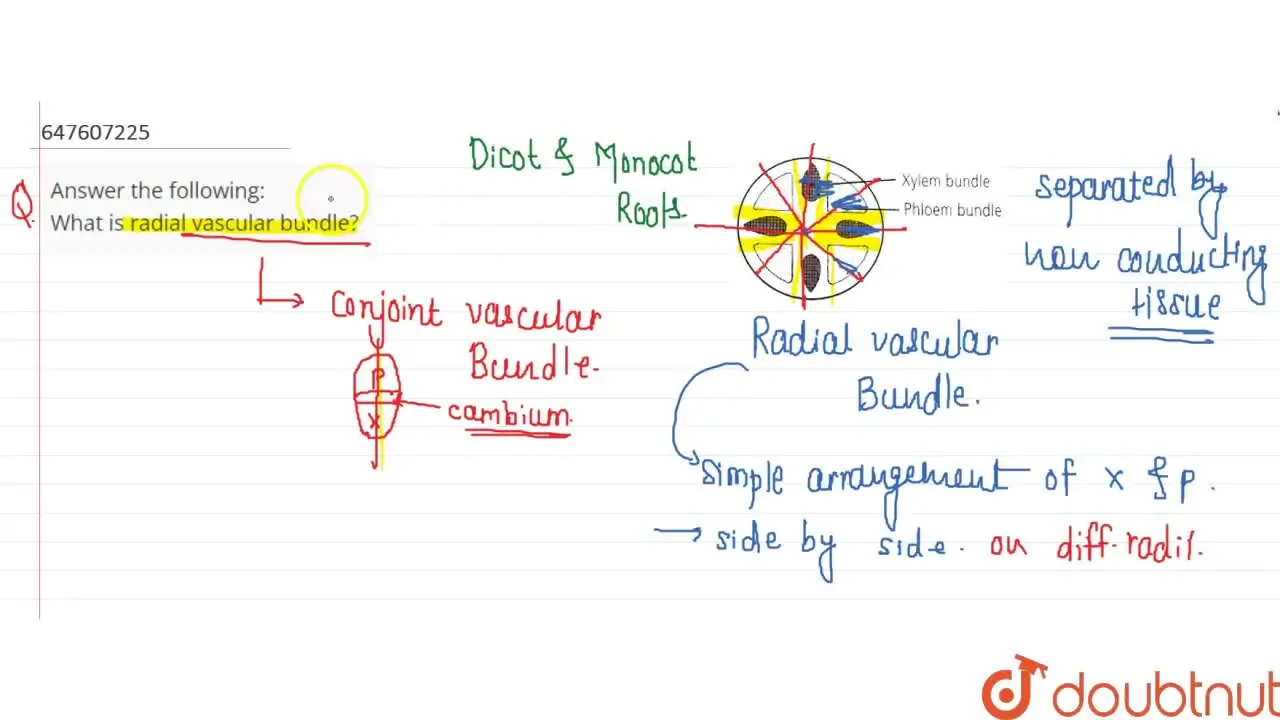 647607225
Q.
Answer the following:
What is radial vascular bundle?
Conjoint vascular
Bundle.
P
X
cambium.
Dicot & Monocot
Roots.
Xylem bundle
Phloem bundle
separated by
non conducting
tissue
Radial vascular
Bundle.
simple arrangement of x & p.
→ side by side. on diff. radii.
doubtnut